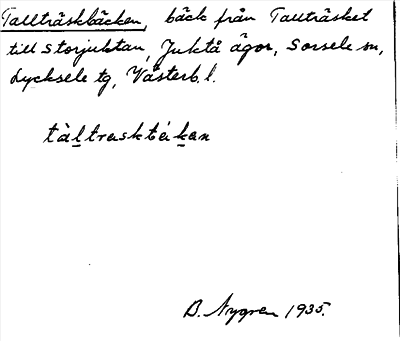 Tallträskbäcken, bäck från Tallträsket
till Storjuktan, Juktå ägor, Sorsele sn,
Lycksele tg, Västerb. l.
tàltraskbɛ́kan
B. Nygren 1935.